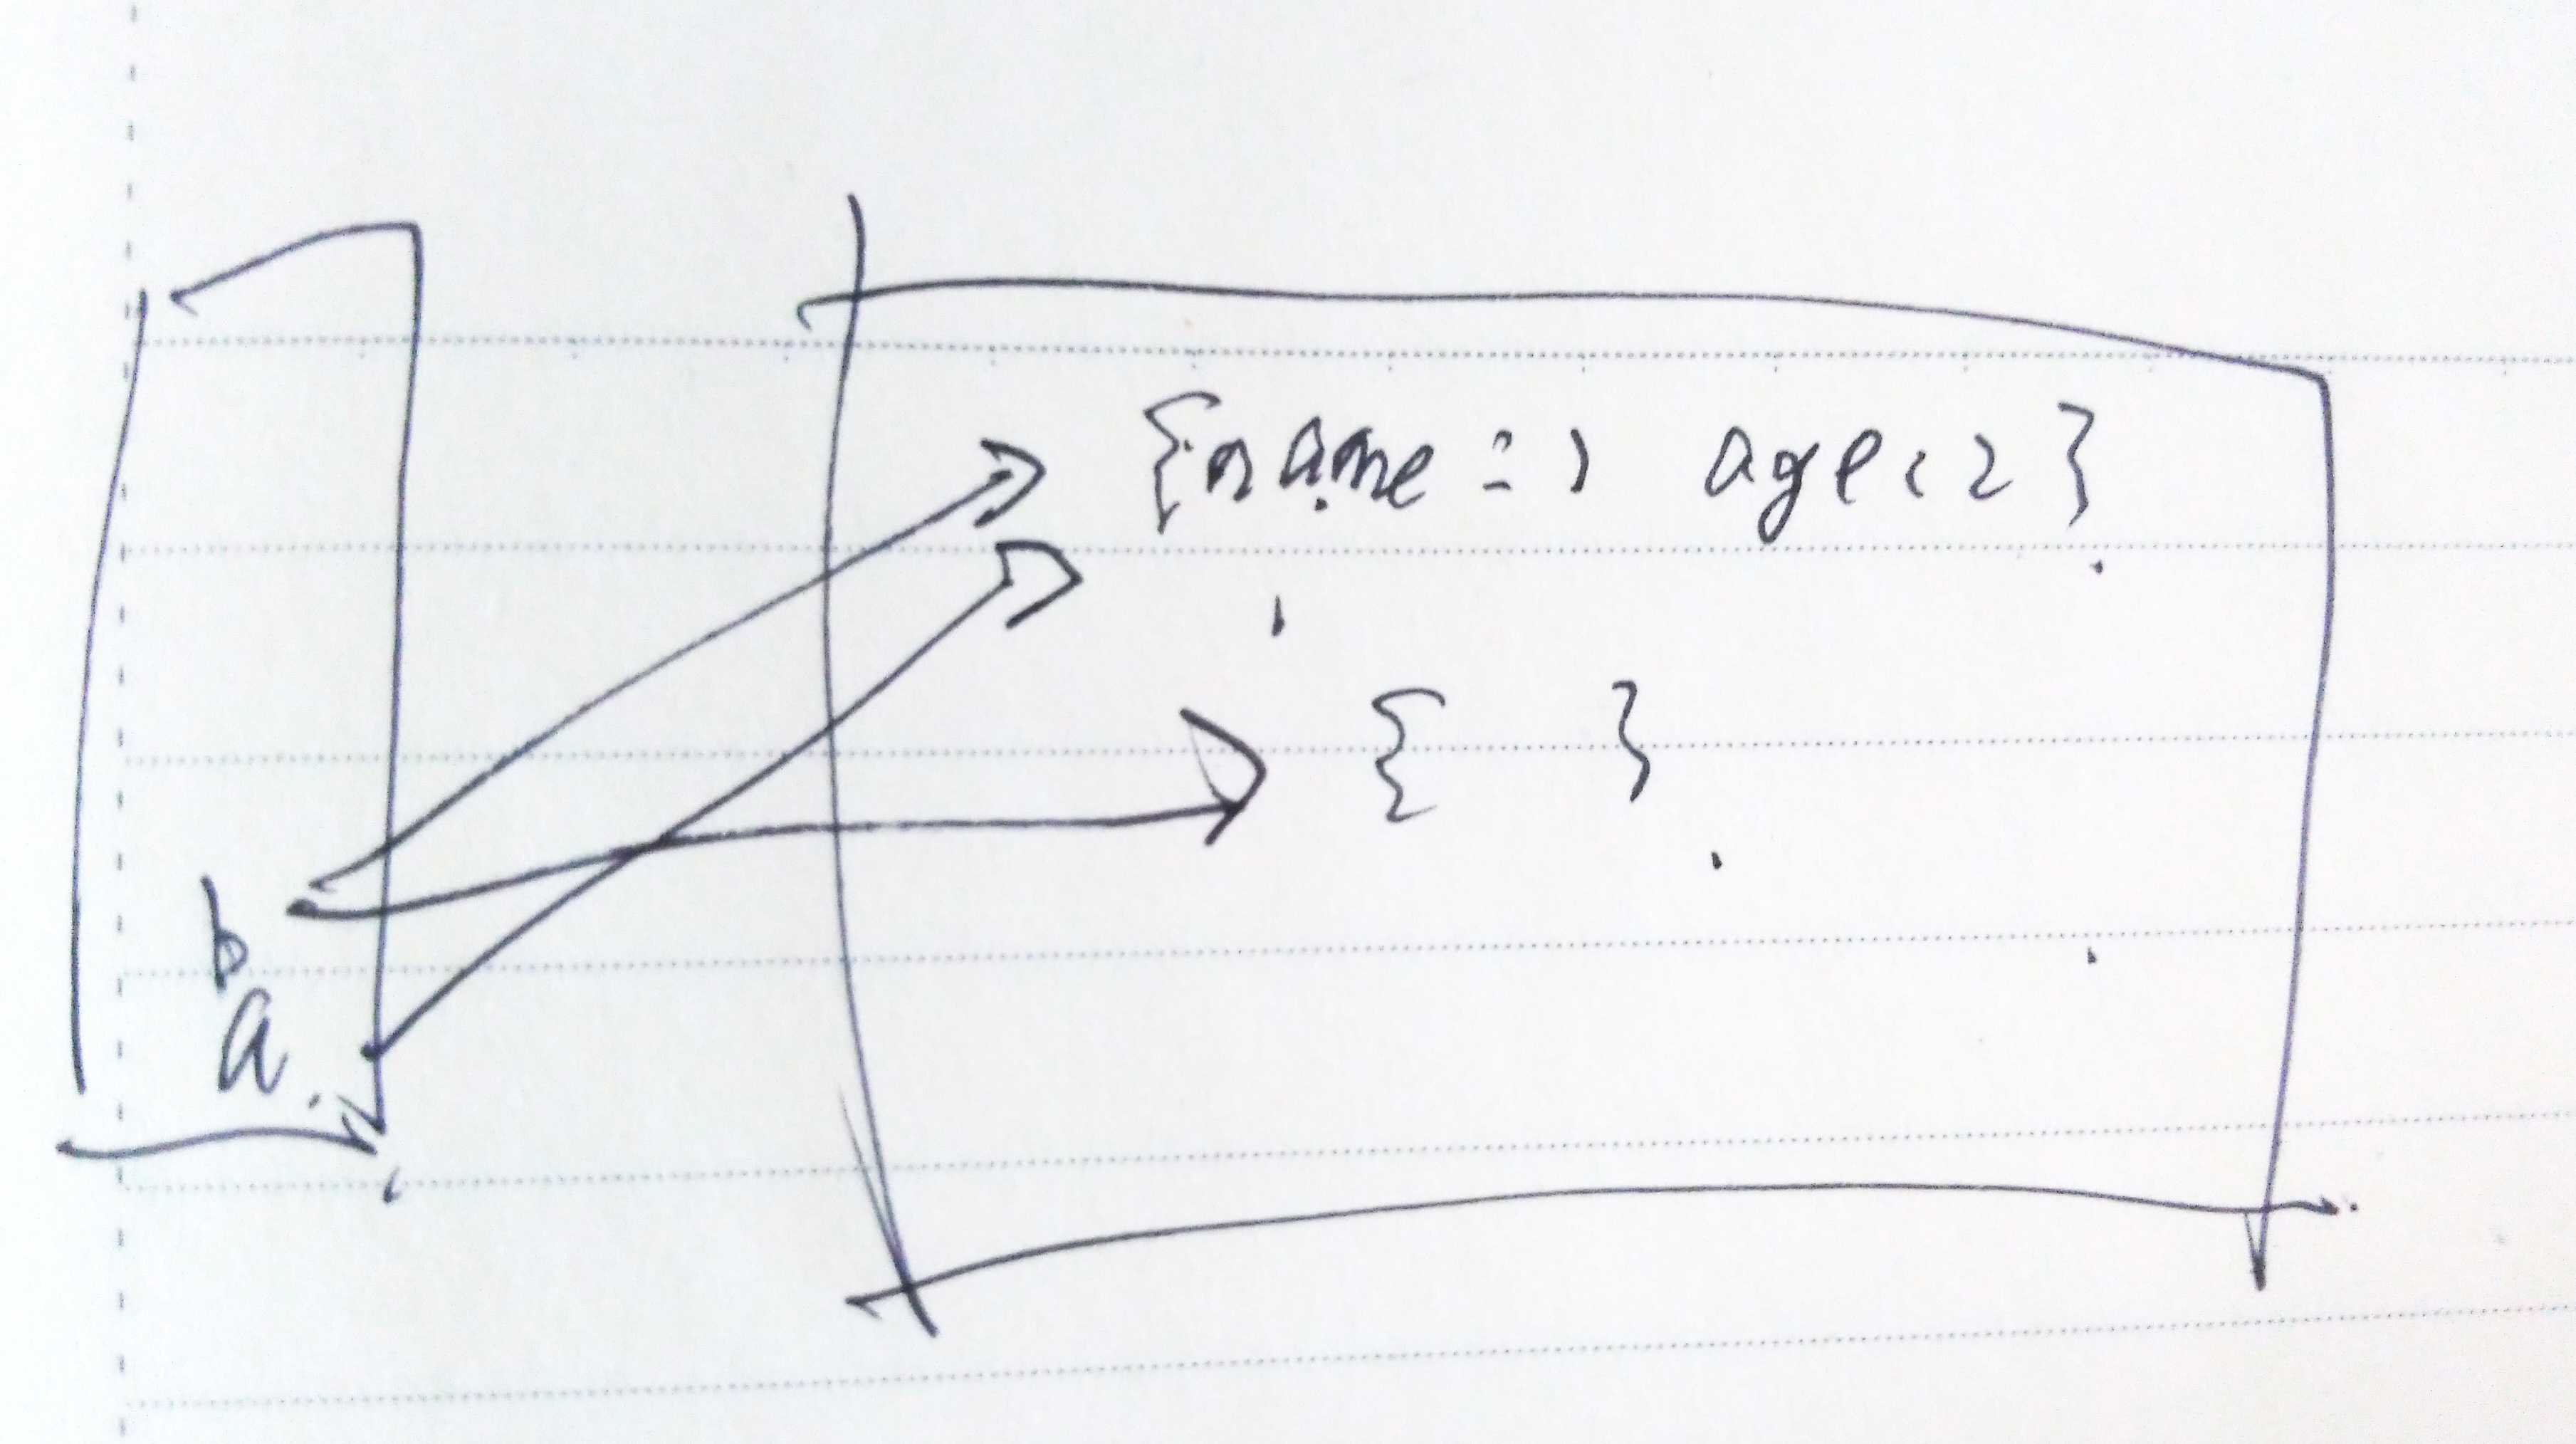 {name: 1 age: 2}
{ }
b
a